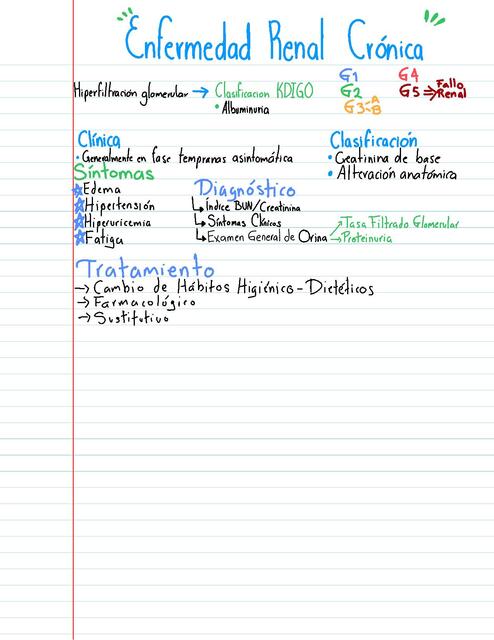 "Enfermedad Renal Crónica"
Hiperfiltración glomerular → Clasificacion KDIGO
• Albuminuria
G1
G2
G3-A
-B
G4
G5 ⇒ Fallo
Renal
Clínica
• Generalmente en fase tempranas asintomática
Clasificación
• Creatinina de base
• Alteración anatómica
Síntomas
☆ Edema
☆ Hipertensión
☆ Hiperuricemia
☆ Fatiga
Diagnóstico
↳ Índice BUN/Creatinina
↳ Síntomas Clínicos
↳ Examen General de Orina
→ Tasa Filtrado Glomerular
→ Proteinuria
Tratamiento
→ Cambio de Hábitos Higiénico-Dietéticos
→ Farmacológico
→ Sustitutivo